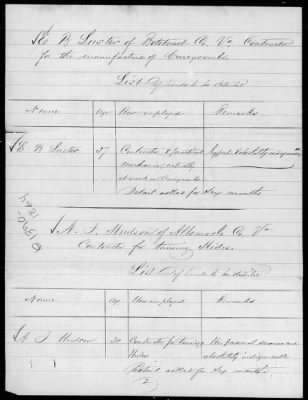 E B Luster of Botetourt Co. Va Contractor
for the manufacture of Currycombs.
List of hands to be detailed
Name Age How employed Remarks
E B Luster 37 Contractor & practical
mechanic
at work on Currycombs
Detail asked for Six months
1390-
1864
N. J. Hudson of Albemarle Co. Va
Contractor for tanning Hides.
List of hands to be detailed
Name Age How employed Remarks
Hudson Contractor for tanning His personal services are
Hides absolutely indispensable
Detail asked for Six months
2